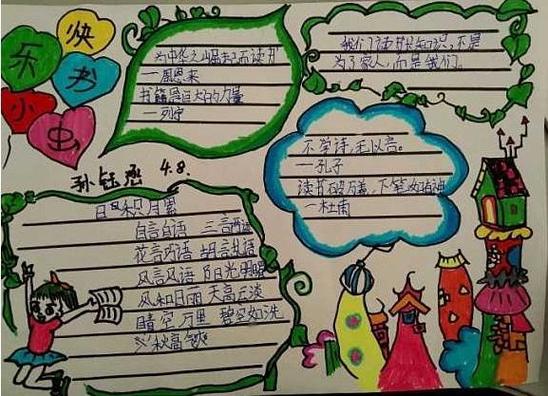 快
乐 书
小 虫
为中华之崛起而读书
—周恩来
书籍是巨大的力量
—列宁
我们读书求知识，不是
为了家人，而是我们。
不学诗，无以言。
—孔子
读书破万卷，下笔如有神
—杜甫
孙钰 4.8.
日积月累
自言自语 三言两语
花言巧语 胡言乱语
风言风语
风和日丽 天高云淡
晴空万里 碧空如洗
秋高气爽